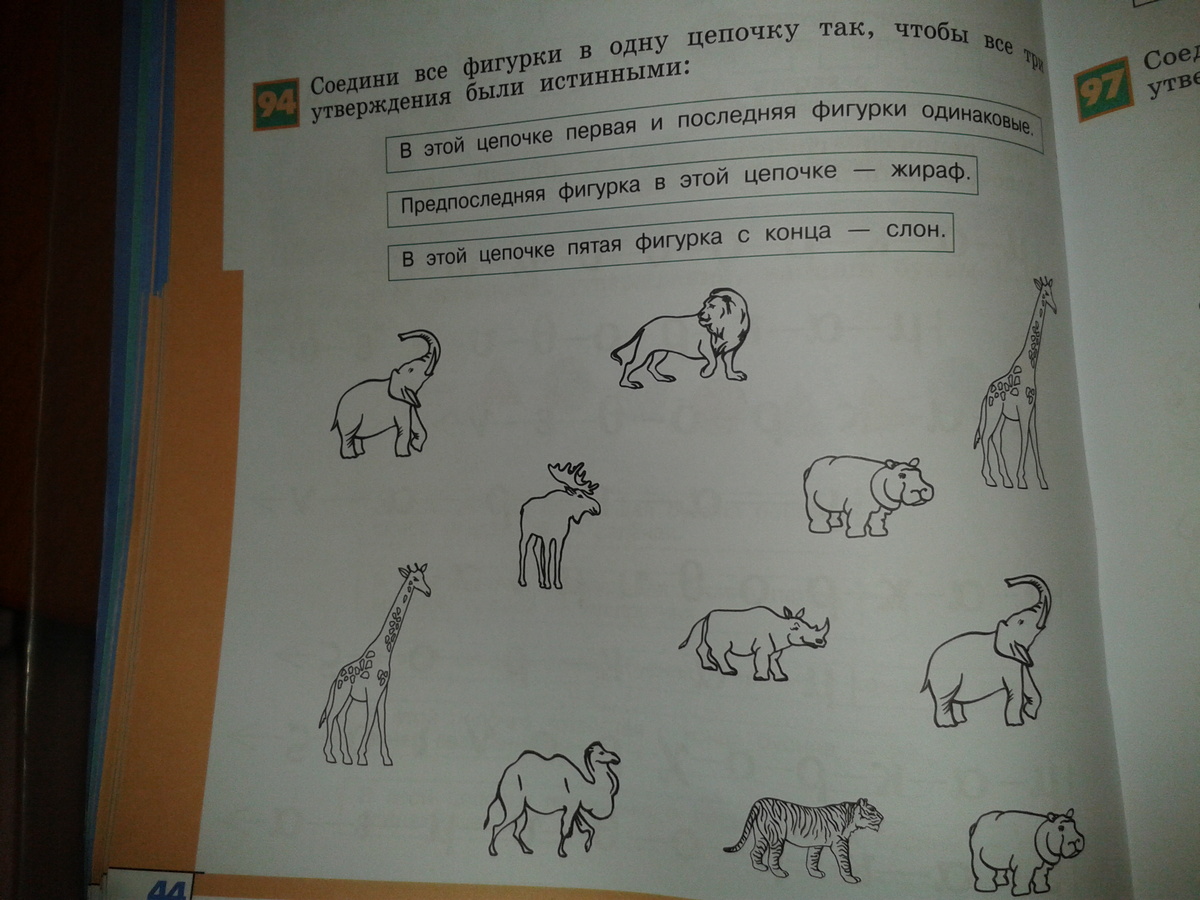 94 Соедини все фигурки в одну цепочку так, чтобы все три
утверждения были истинными:
В этой цепочке первая и последняя фигурки одинаковые.
Предпоследняя фигурка в этой цепочке — жираф.
В этой цепочке пятая фигурка с конца — слон.
44
97 Соед
утве